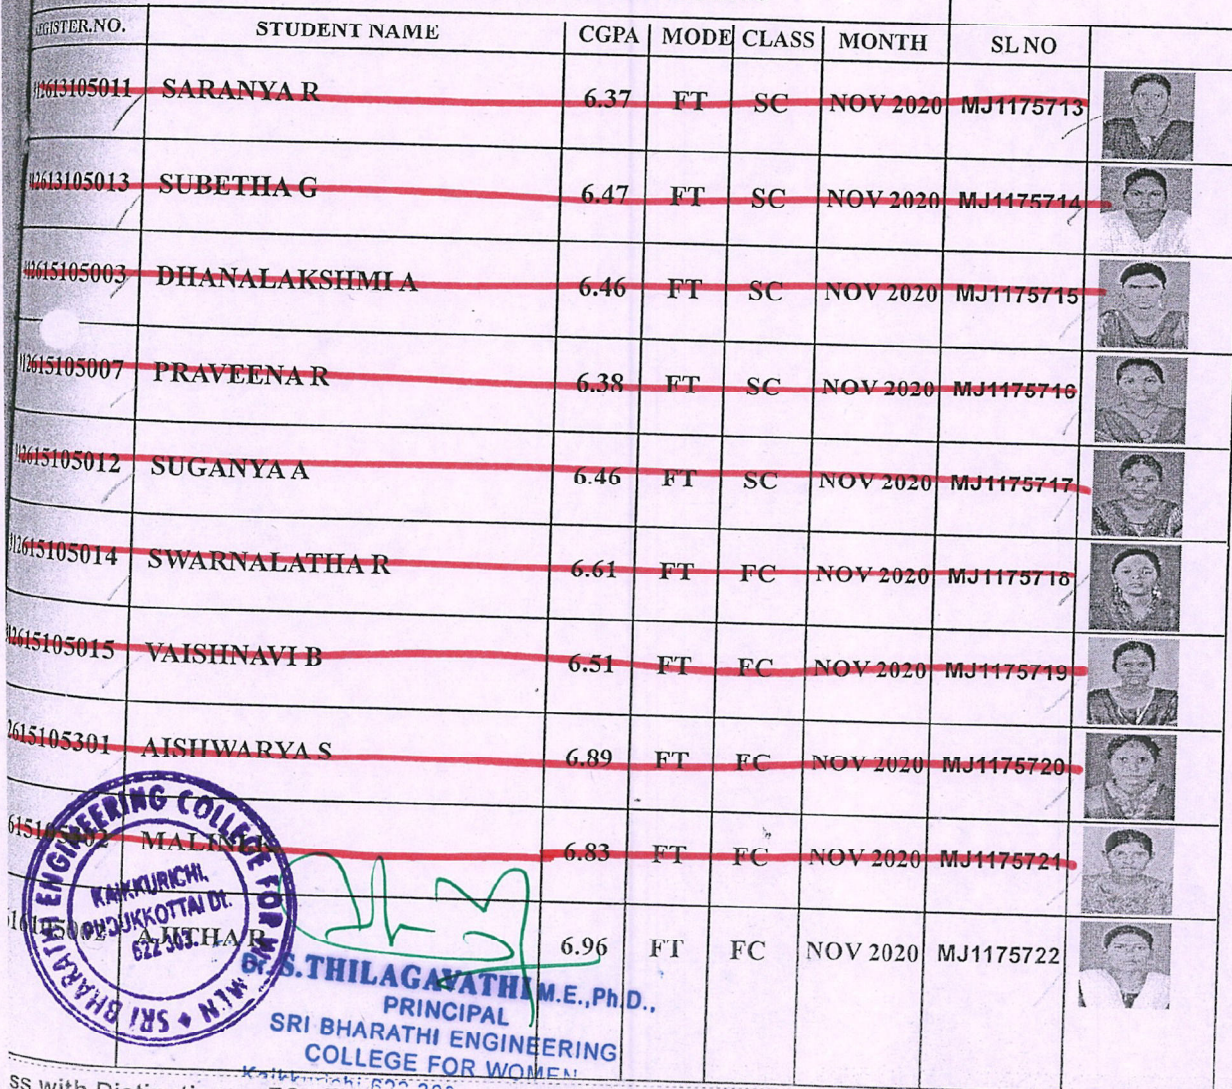 REGISTER.NO. STUDENT NAME CGPA MODE CLASS MONTH SL NO
912613105011 SARANYA R 6.37 FT SC NOV 2020 MJ1175713
912613105013 SUBETHA G 6.47 FT SC NOV 2020 MJ1175714
912615105003 DHANALAKSHMI A 6.46 FT SC NOV 2020 MJ1175715
912615105007 PRAVEENA R 6.38 FT SC NOV 2020 MJ1175716
912615105012 SUGANYA A 6.46 FT SC NOV 2020 MJ1175717
912615105014 SWARNALATHA R 6.61 FT FC NOV 2020 MJ1175718
912615105015 VAISHNAVI B 6.51 FT FC NOV 2020 MJ1175719
2615105301 AISHWARYA S 6.89 FT FC NOV 2020 MJ1175720
MALINI 6.83 FT FC NOV 2020 MJ1175721
AJITHA R 6.96 FT FC NOV 2020 MJ1175722
SRI BHARATHI ENGINEERING COLLEGE FOR WOMEN
KAIKKURICHI,
PUDUKKOTTAI Dt.
622 303.
Dr. S.THILAGAVATHI M.E.,Ph.D.,
PRINCIPAL
SRI BHARATHI ENGINEERING
COLLEGE FOR WOMEN